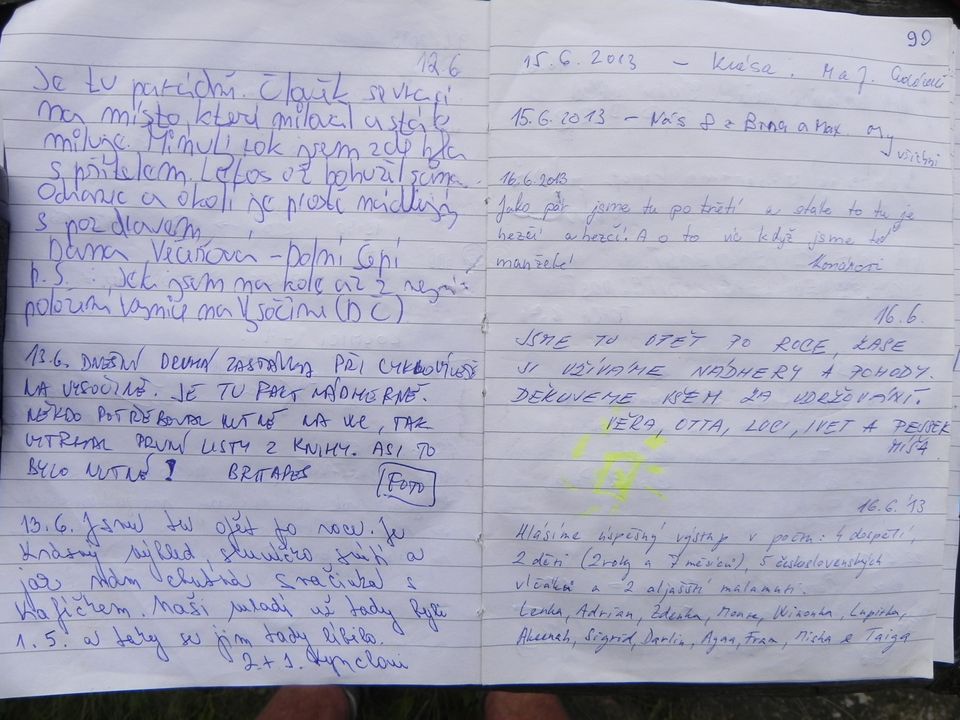 12.6
Je tu parádně. Člověk se vrací
na místo, které miloval a stále
miluje. Minulý rok jsem zde byla
s přítelem. Letos už bohužel sama.
Odranec a okolí je prostě nádherný
s pozdravem
Dana Večeřová - Dolní Čepí
p.S. : jak jsem na kole až z
položení vesnice na Vysočině (DČ)
13.6. DNEŠNÍ DRUHÁ ZASTÁVKA PŘI CYKLOVÝLETĚ
NA VYSOČINĚ. JE TU FAKT NÁDHERNĚ.
NĚKDO POTŘEBOVAL NUTNĚ NA WC, TAK
VYTRHAL PRVNÍ LISTY Z KNIHY. ASI TO
BYLO NUTNÉ! BRTAPES FOTO
13.6. Jsme tu opět po roce. Je
krásný výhled, sluníčko svítí a
já mám chutná svačinka s
kafíčkem. Naši mladí už tady byli
1.5. a taky se jim tady líbilo.
2+1.
90
15.6.2013 - krása. Ma J.
15.6.2013 - Nás 8 z Brna a Max. My
všichni
16.6.2013
Jako pár jsme tu po třetí a stále to tu je
hezčí a hezčí! A o to víc když jsme teď
manželé!
16.6.
JSME TU OPĚT PO ROCE, ZASE
SI UŽÍVÁME NÁDHERY A POHODY.
DĚKUJEME VŠEM ZA UDRŽOVÁNÍ.
VĚRA, OTTA, LUCI, IVET A PEJSEK
MÍŠA
16.6.'13
Hlásíme úspěšný výstup v počtu: 4 dospělí,
2 děti (2 roky a 7 měsíců), 5 československých
vlčáků a 2 aljašští malamuti.
Lenka, Adrian, Zdenka, Lupinka,
Sigrid, Darlin, Ayna, Fram, Misha a Taiga